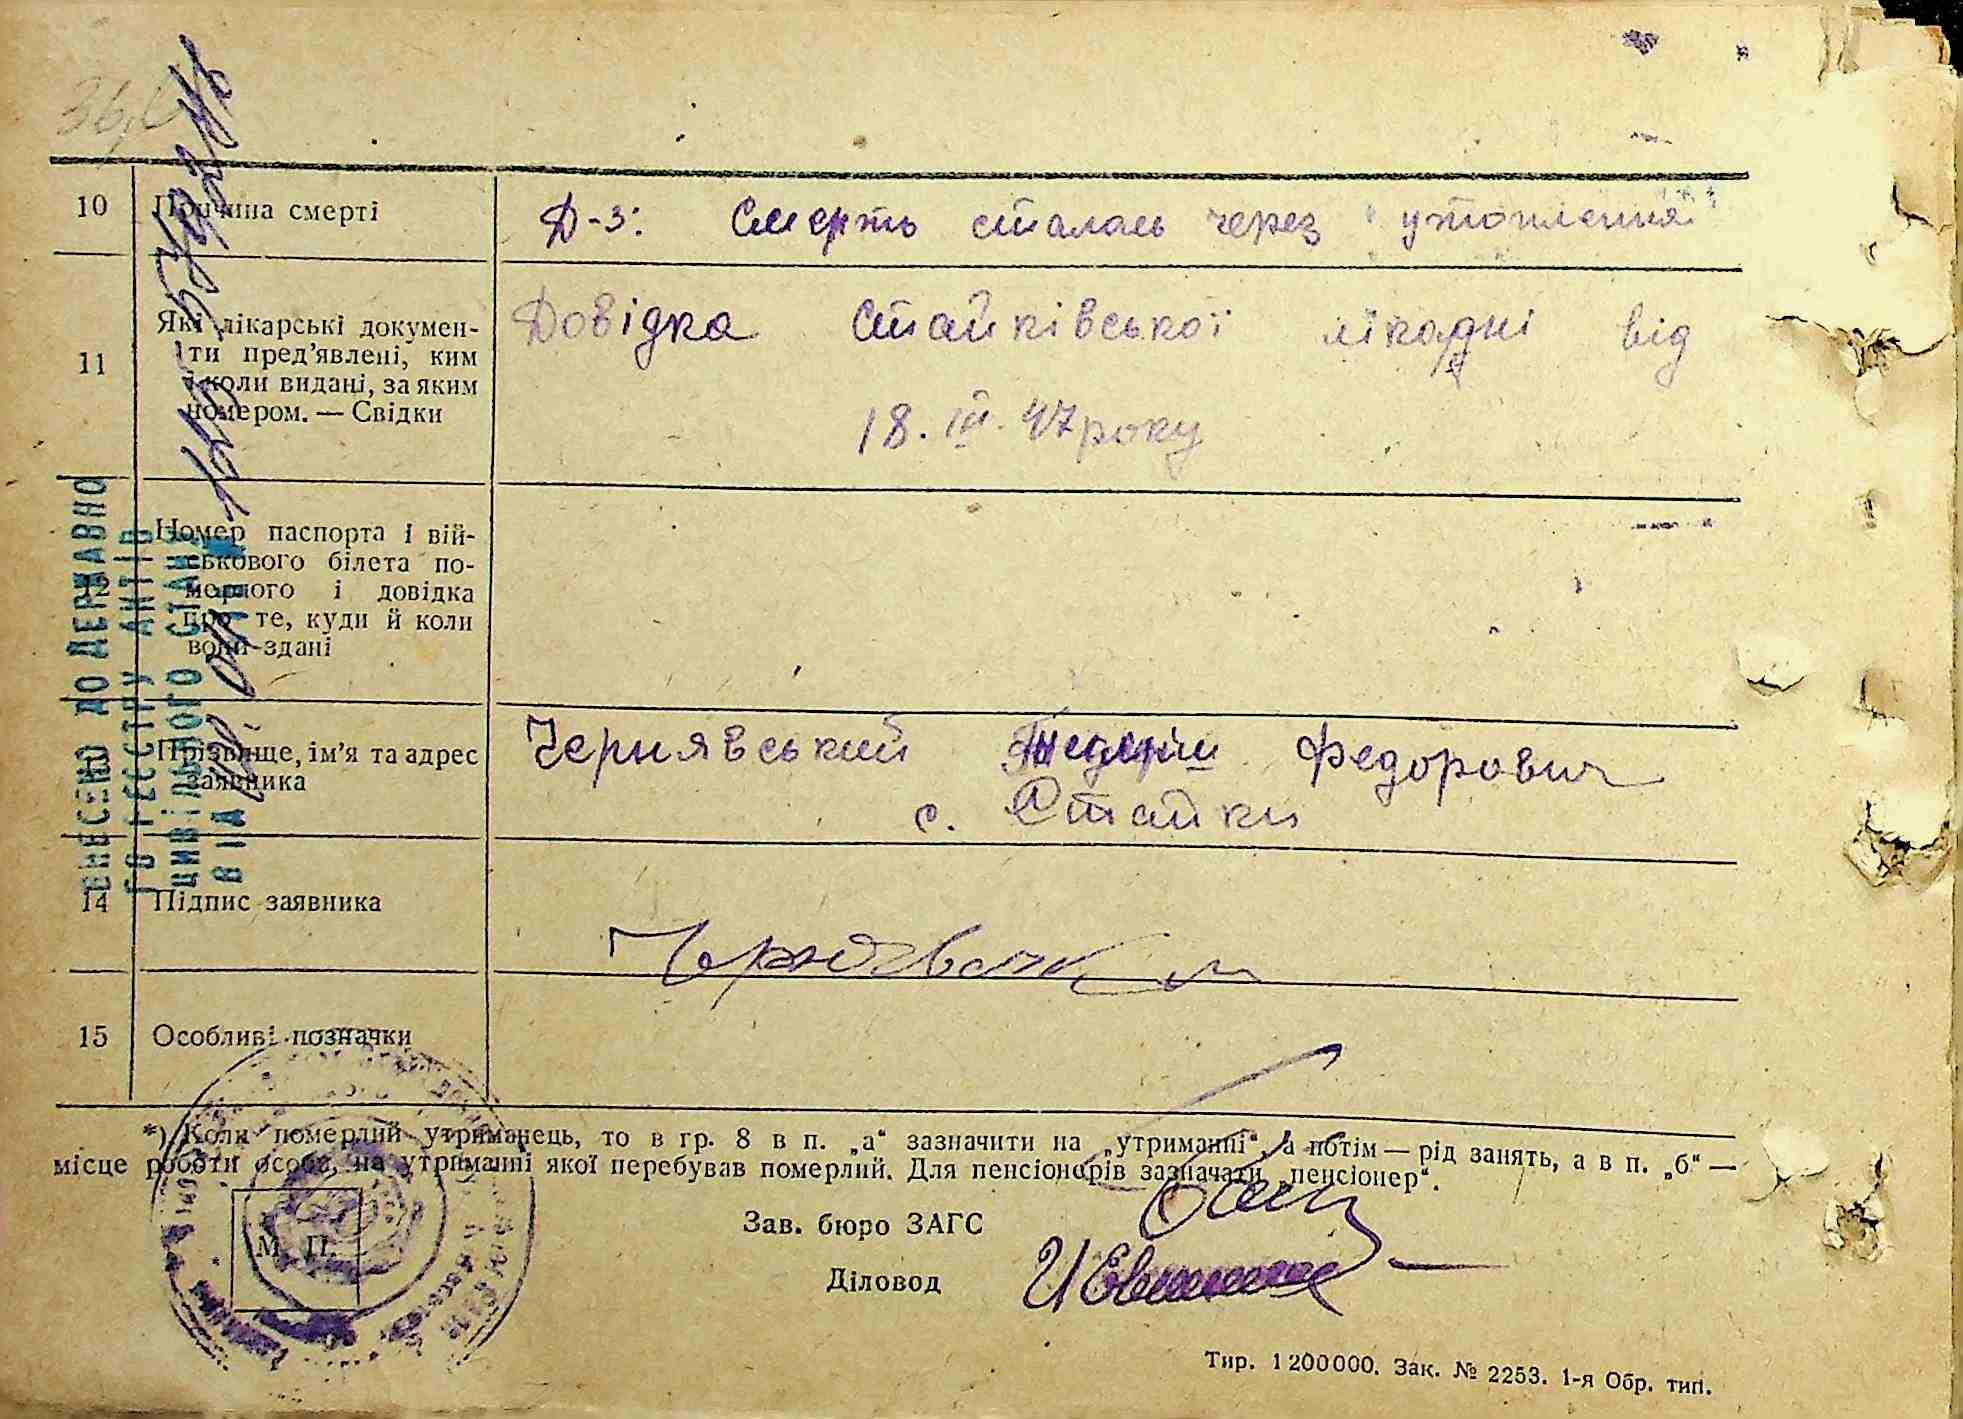 10
Причина смерті
Д-з: Смерть сталась через утоплення
11
Які лікарські докумен-
ти пред'явлені, ким
і коли видані, за яким
номером. — Свідки
Довідка Стайківської лікарні від
18.III.47 року
12
Номер паспорта і вій-
ськового білета по-
мерлого і довідка
про те, куди й коли
вони здані
13
Прізвище, ім'я та адрес
заявника
Чернявський Федорович
с. Стайки
14
Підпис заявника
15
Особливі позначки
ВНЕСЕНО ДО ДЕРЖАВНО
ГО РЕЄСТРУ АКТІВ
ЦИВІЛЬНОГО СТАНУ
*) Коли померлий утриманець, то в гр. 8 в п. „а“ зазначити на „утриманні“, а потім — рід занять, а в п. „б“ —
місце роботи особи, на утриманні якої перебував померлий. Для пенсіонерів зазначати „пенсіонер“.
М. П.
Зав. бюро ЗАГС
Діловод
Тир. 1 200000. Зак. № 2253. 1-я Обр. тип.